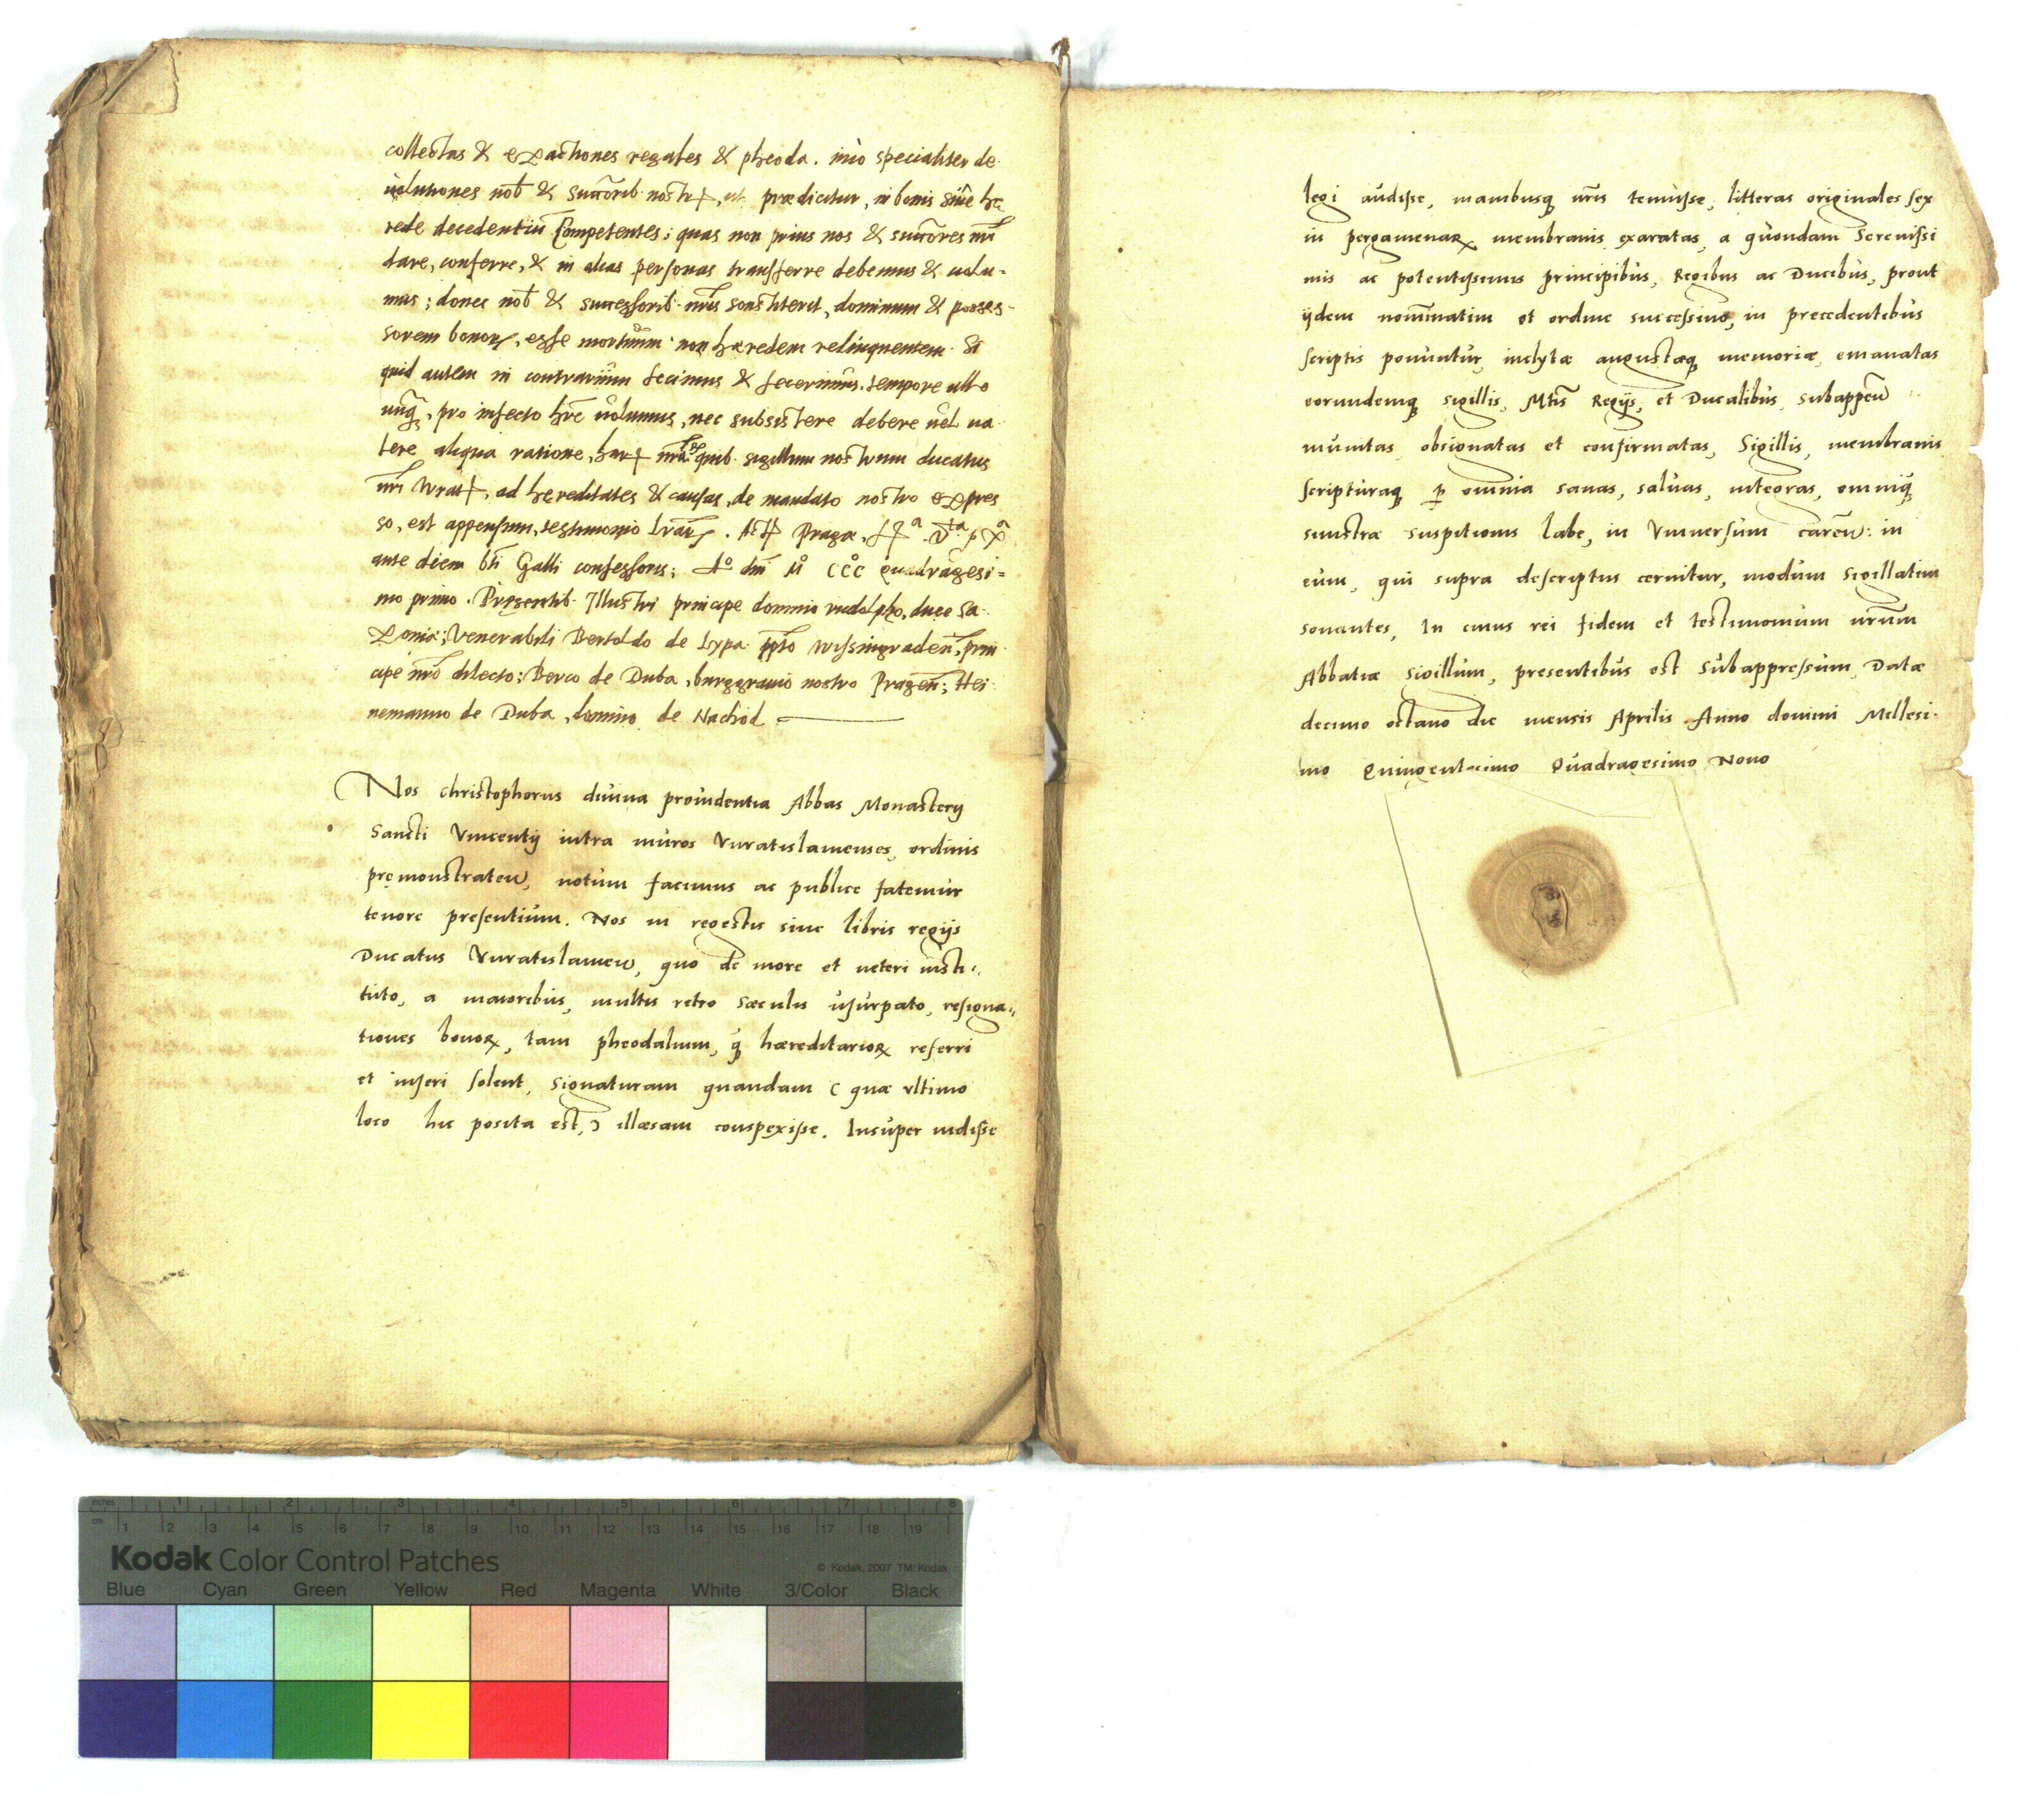 collectas & exactiones regales & pheoda. imo specialiter de
uolutiones nob & succorib. nostr, ut prædicitur, in bonis sine hę
rede decedentiũ competentes; quas non prius nos & succores nri
dare, conferre, & in alias personas transferre debemus & uolu-
mus; donec nob & successorib. nris constiterit, dominum & posses-
sorem bonor, esse mortuum non hæredem relinquentem. Si
quid autem in contrarium fecimus & fecerimus. tempore ullo
unq, pro infecto hre uolumus, nec subsistere debere uel ua
lere aliqua ratione, har nrar quib. sigillum nostrum ducatus
nri Wrat, ad hereditates & causas, de mandato nostro expres
so, est appensum, testimonio lrar. Act Pragæ,
ante diem bti Galli confessoris; Ao dni Mo CCC quadragesi=
mo primo. Presentib. Illustri principe domino rudolpho, duce Sa
xoniæ; Venerabili Bertoldo de Lypa ppto Wissingraden, prin
cipe nro dilecto; Berco de Duba, burggrauio nostro Pragen; Hei
nemanno de Duba, domino de Nachod
Nos christophorus diuina prouidentia Abbas Monastery
Sancti Vincentij intra muros Vuratislauienses, ordinis
pręmonstraten, notum facimus ac publice fatemur
tenore presentium. Nos in regestis siue libris regijs
Ducatus Vuratislauien, quo de more et ueteri insti-
tuto, a maioribus, multis retro sæculis usurpato, resigna-
tiones bonoꝝ, tam pheodalium, q̃ hæreditarioꝝ referri
et inseri solent, signaturam quandam ( quæ vltimo
loco hic posita est, ) illæsam conspexisse. Insuper uidisse
legi audisse, manibusq nris tenuisse, litteras originales sex
in pergamenaꝝ membranis exaratas, a quondam Serenissi
mis ac potentissimis principibus, Regibus ac Ducibus, prout
ijdem nominatim et ordine successiuo, in precedentibus
scriptis ponuntur, inclytæ augustæq memoriæ, emanatas
eorundemq sigillis, Mtis Regijs, et Ducalibus, subappen
munitas obsignatas et confirmatas, Sigillis, membranis
scripturaq p omnia sanas, saluas, integras, omniq
sinistræ suspitionis labe, in Vniuersum caren: in
eum, qui supra descriptus cernitur, modum sigillatim
sonantes, In cuius rei fidem et testimonium nrum
Abbatiæ sigillum, presentibus est subappressum, Datæ
decimo octauo die mensis Aprilis Anno domini Millesi-
mo Quingentesimo Quadragesimo Nono
inches 1 2 3 4 5 6 7 8
cm 1 2 3 4 5 6 7 8 9 10 11 12 13 14 15 16 17 18 19
Kodak Color Control Patches © Kodak, 2007 TM: Kodak
Blue Cyan Green Yellow Red Magenta White 3/Color Black